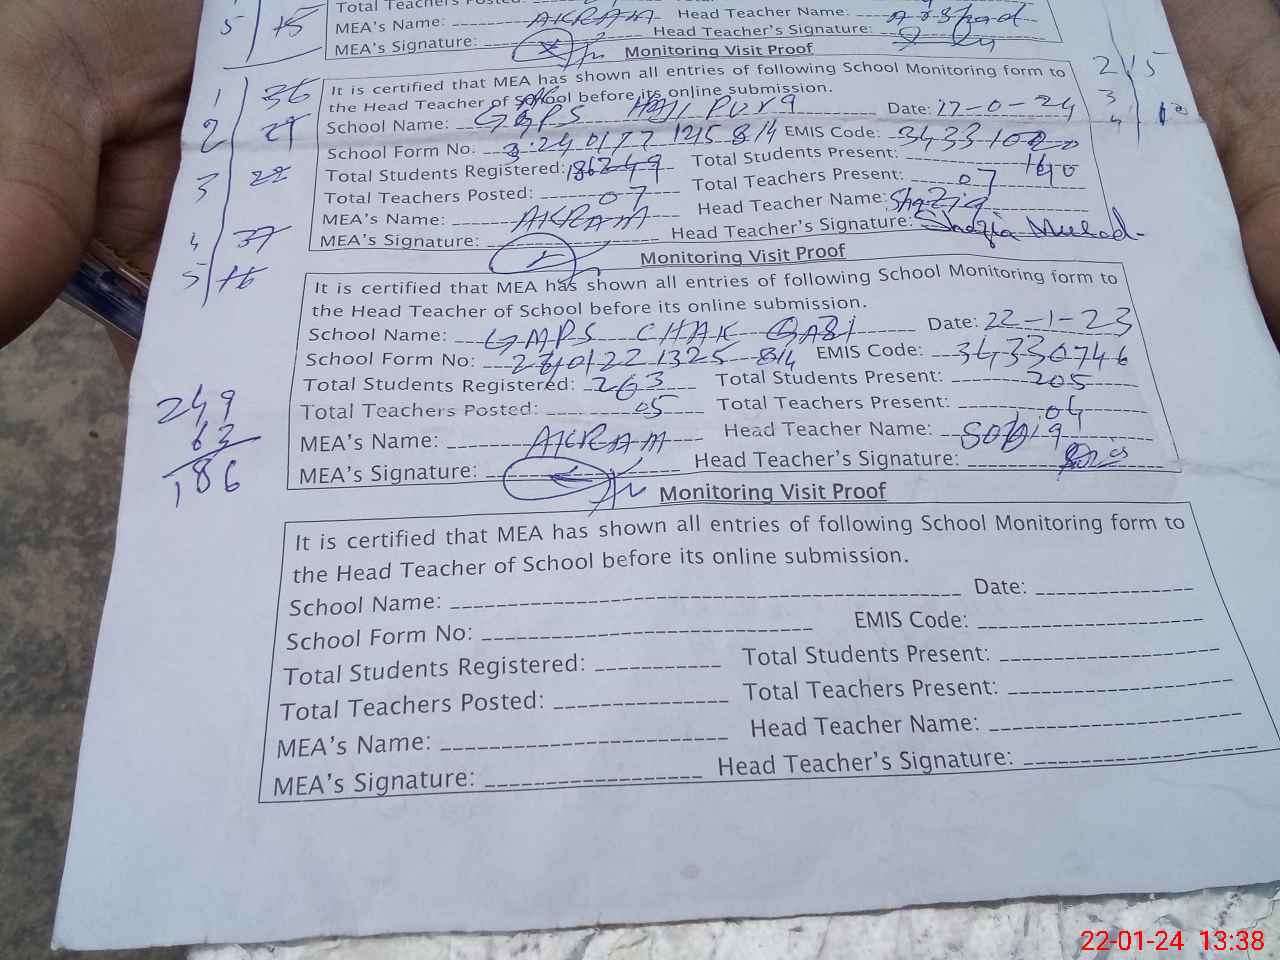 Total Teachers Posted:
5 15 MEA's Name: AKRAM Head Teacher Name: Arshad
MEA's Signature: Head Teacher's Signature:
Monitoring Visit Proof
1 36 It is certified that MEA has shown all entries of following School Monitoring form to 2 5
the Head Teacher of School before its online submission. 3
2 29 School Name: GGPS Date: 4
School Form No. EMIS Code:
3 22 Total Students Registered: Total Students Present: 160
Total Teachers Posted: 07 Total Teachers Present: 07
4 37 MEA's Name: AKRAM Head Teacher Name: Shazia
5 16 MEA's Signature: Head Teacher's Signature: Shazia Murad
Monitoring Visit Proof
It is certified that MEA has shown all entries of following School Monitoring form to
the Head Teacher of School before its online submission.
School Name: CHAK Date: 22-1-23
School Form No: EMIS Code: 34330746
249 Total Students Registered: 263 Total Students Present: 205
63 Total Teachers Posted: 05 Total Teachers Present: 04
186 MEA's Name: AKRAM Head Teacher Name:
MEA's Signature: Head Teacher's Signature:
Monitoring Visit Proof
It is certified that MEA has shown all entries of following School Monitoring form to
the Head Teacher of School before its online submission.
School Name: Date:
School Form No: EMIS Code:
Total Students Registered: Total Students Present:
Total Teachers Posted: Total Teachers Present:
MEA's Name: Head Teacher Name:
MEA's Signature: Head Teacher's Signature:
22-01-24 13:38